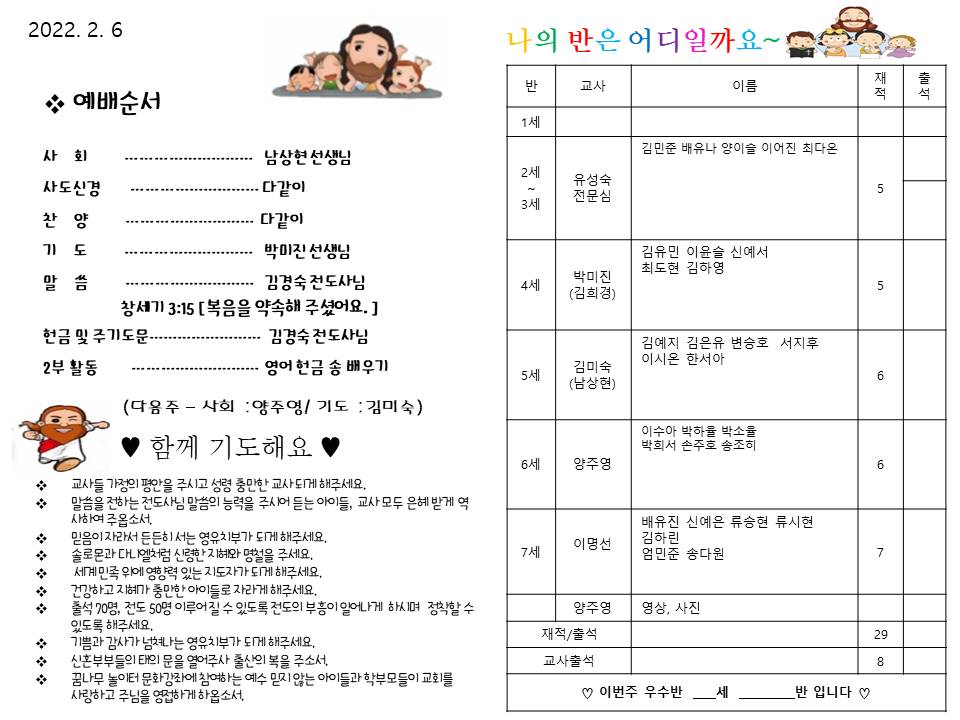 2022. 2. 6
❖ 예배순서
사 회 --------------------------- 남상현선생님
사도신경 --------------------------- 다같이
찬 양 --------------------------- 다같이
기 도 --------------------------- 박미진선생님
말 씀 --------------------------- 김경숙전도사님
창세기 3:15 [복음을 약속해 주셨어요. ]
헌금 및 주기도문------------------------ 김경숙전도사님
2부 활동 --------------------------- 영어 헌금 송 배우기
(다음주 – 사회 :양주영/ 기도 :김미숙)
♥ 함께 기도해요 ♥
❖ 교사들 가정의 평안을 주시고 성령 충만한 교사 되게 해주세요.
❖ 말씀을 전하는 전도사님 말씀의 능력을 주시어 듣는 아이들, 교사 모두 은혜 받게 역
사하여 주옵소서.
❖ 믿음이 자라서 든든히 서는 영유치부가 되게 해주세요.
❖ 솔로몬과 다니엘처럼 신령한 지혜와 명철을 주세요.
❖ 세계 민족 위에 영향력 있는 지도자가 되게 해주세요.
❖ 건강하고 지혜가 충만한 아이들로 자라게 해주세요.
❖ 출석 70명, 전도 50명 이루어 질 수 있도록 전도의 부흥이 일어나게 하시며 정착할 수
있도록 해주세요.
❖ 기쁨과 감사가 넘쳐나는 영유치부가 되게 해주세요.
❖ 신혼부부들의 태의 문을 열어주사 출산의 복을 주소서.
❖ 꿈나무 놀이터 문화강좌에 참여하는 예수 믿지 않는 아이들과 학부모들이 교회를
사랑하고 주님을 영접하게 하옵소서.
나의 반은 어디일까요~
반 교사 이름 재적 출석
1세
2세 ~ 3세 유성숙 전문심 김민준 배유나 양이슬 이어진 최다온 5
4세 박미진 (김희경) 김유민 이윤슬 신예서
최도현 김하영 5
5세 김미숙 (남상현) 김예지 김은유 변승호 서지후
이시온 한서아 6
6세 양주영 이수아 박하율 박소율
박희서 손주호 송조히 6
7세 이명선 배유진 신예은 류승현 류시현
김하린
엄민준 송다원 7
양주영 영상, 사진
재적/출석 29
교사출석 8
♡ 이번주 우수반 ___세 ________반 입니다 ♡